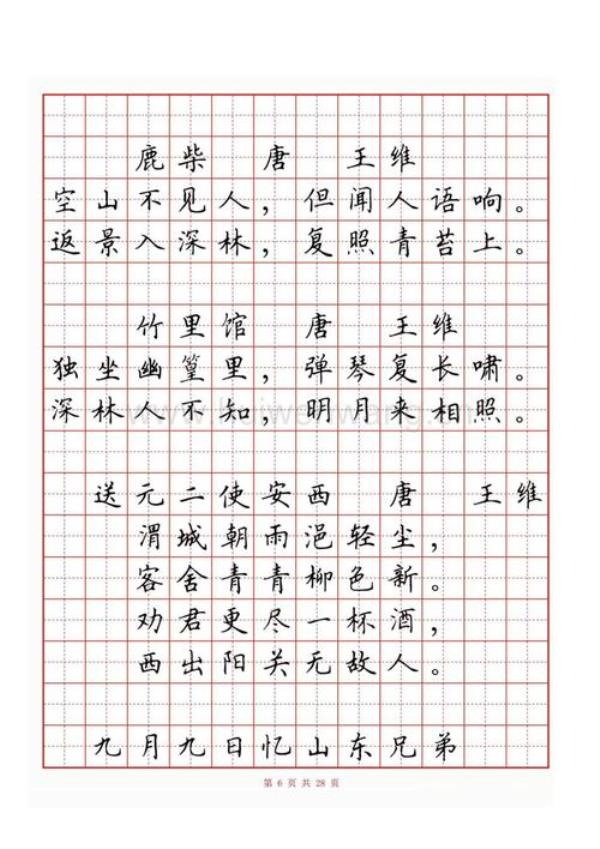 鹿柴 唐 王维
空山不见人，但闻人语响。
返景入深林，复照青苔上。
竹里馆 唐 王维
独坐幽篁里，弹琴复长啸。
深林人不知，明月来相照。
送元二使安西 唐 王维
渭城朝雨浥轻尘，
客舍青青柳色新。
劝君更尽一杯酒，
西出阳关无故人。
九月九日忆山东兄弟
第 6 页 共 28 页